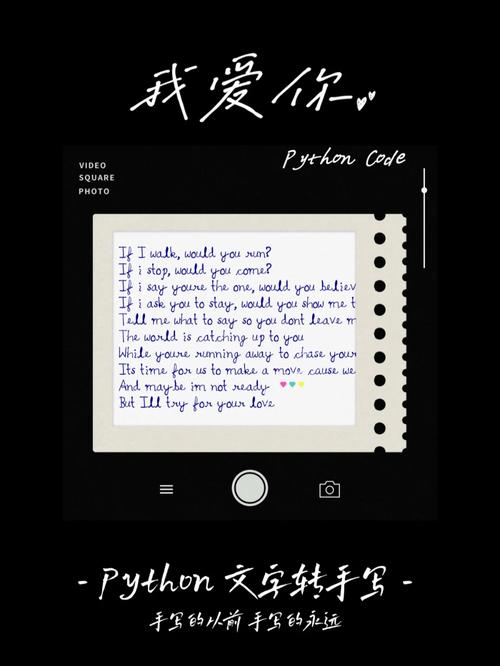 我爱你
Python Code
VIDEO
SQUARE
PHOTO
If I walk, would you run?
If i stop, would you come?
If i say youre the one, would you believ
If i ask you to stay, would you show me t
Tell me what to say so you dont leave m
The world is catching up to you
While youre running away to chase your
Its time for us to make a move cause we
And maybe im not ready
But Ill try for your love
- Python 文字转手写 -
手写的从前 手写的永远